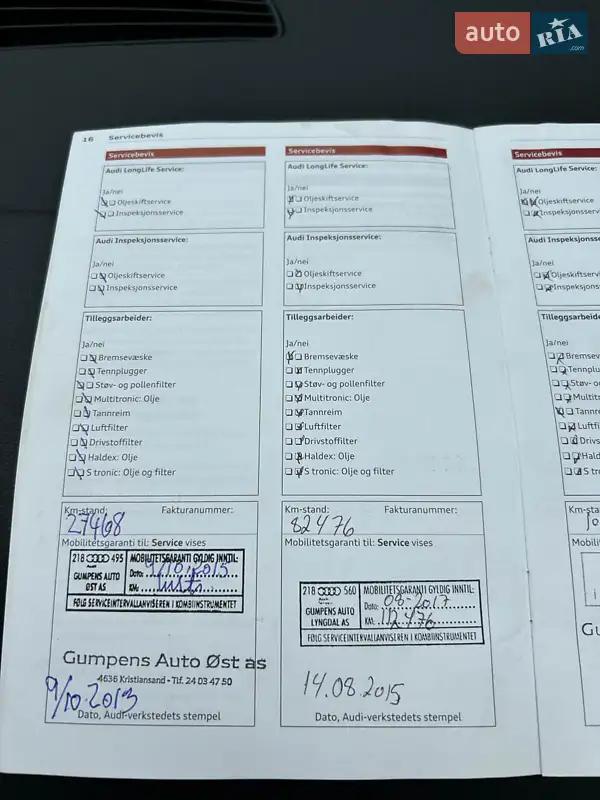 auto RIA .com
16 Servicebevis
Servicebevis
Audi LongLife Service:
Ja/nei
Oljeskiftservice
Inspeksjonsservice
Audi Inspeksjonsservice:
Ja/nei
Oljeskiftservice
Inspeksjonsservice
Tilleggsarbeider:
Ja/nei
Bremsevæske
Tennplugger
Støv- og pollenfilter
Multitronic: Olje
Tannreim
Luftfilter
Drivstoffilter
Haldex: Olje
S tronic: Olje og filter
Km-stand: Fakturanummer:
27468
Mobilitetsgaranti til: Service vises
218 495 MOBILITETSGARANTI GYLDIG INNTIL:
Dato: 9/10.2015
GUMPENS AUTO
ØST AS
KM:
FØLG SERVICEINTERVALLANVISEREN I KOMBIINSTRUMENTET
Gumpens Auto Øst as
4636 Kristiansand • Tlf. 24 03 47 50
9/10.2013
Dato, Audi-verkstedets stempel
Servicebevis
Audi LongLife Service:
Ja/nei
Oljeskiftservice
Inspeksjonsservice
Audi Inspeksjonsservice:
Ja/nei
Oljeskiftservice
Inspeksjonsservice
Tilleggsarbeider:
Ja/nei
Bremsevæske
Tennplugger
Støv- og pollenfilter
Multitronic: Olje
Tannreim
Luftfilter
Drivstoffilter
Haldex: Olje
S tronic: Olje og filter
Km-stand: Fakturanummer:
82476
Mobilitetsgaranti til: Service vises
218 560 MOBILITETSGARANTI GYLDIG INNTIL:
Dato: 08-2017
GUMPENS AUTO
LYNGDAL AS
KM: 112476
FØLG SERVICEINTERVALLANVISEREN I KOMBIINSTRUMENTET
14.08.2015
Dato, Audi-verkstedets stempel
Servicebevis
Audi LongLife Service:
Ja/nei
Oljeskiftservice
Inspeksjonsservice
Audi Inspeksjons
Ja/nei
Oljeskiftservic
Inspeksjons
Tilleggsarbeider:
Ja/nei
Bremsev
Tennplu
Støv- o
Multit
Tannr
Luftfi
Drivs
Hald
S tr
Km-sta
Mobili
Gu